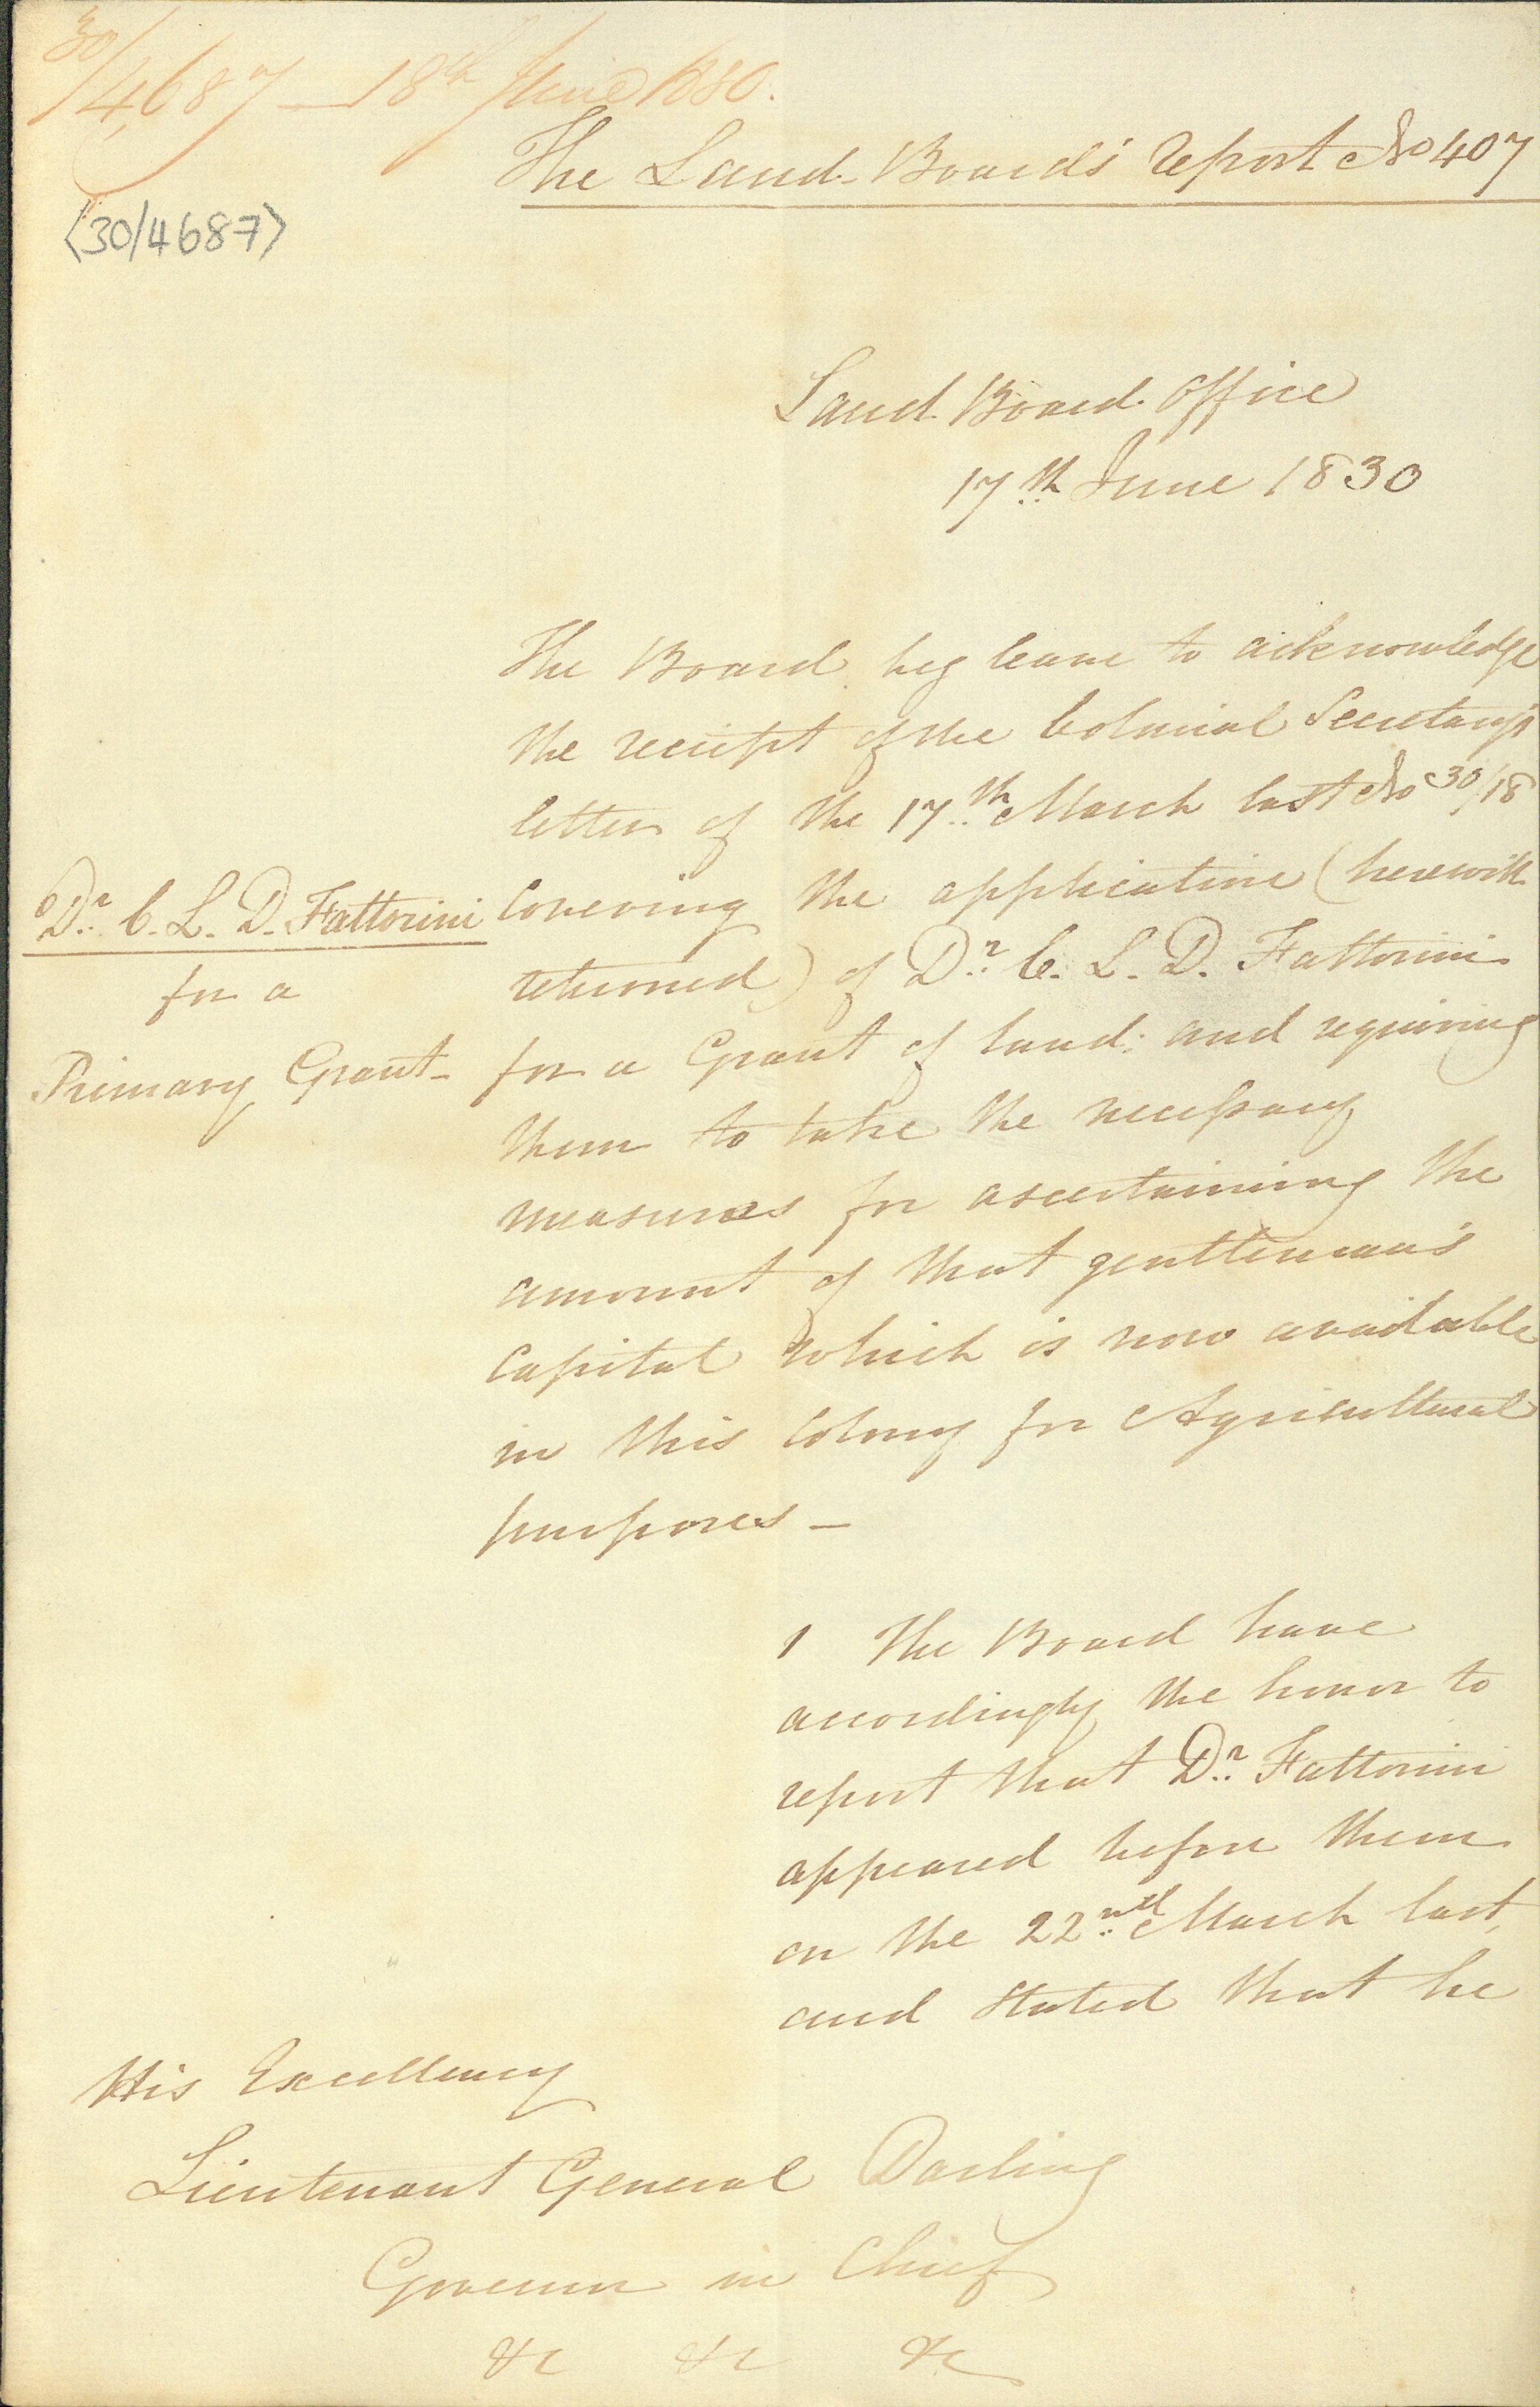 30/4687 — 18th June 1830.
The Land Board's report No 407
<30/4687>
Land Board Office
17th June 1830
The Board beg leave to acknowledge
the receipt of the Colonial Secretary's
letter of the 17th March last No 30/18
Covering the application (herewith
returned) of Dr. C. L. D. Fattorini
for a Grant of land: and requiring
them to take the necessary
measures for ascertaining the
amount of that gentleman's
Capital which is now available
in this Colony for Agricultural
purposes —
Dr. C. L. D. Fattorini
for a
Primary Grant -
1 The Board have
accordingly the honor to
report that Dr. Fattorini
appeared before them
on the 22nd March last,
and stated that he
His Excellency
Lieutenant General Darling
Governor in Chief
&c &c &c